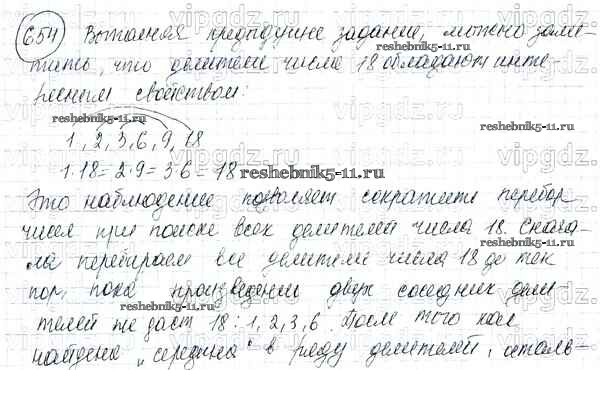 654 Выполняя предыдущие задание, можно заме-
тить, что делители числа 18 обладают инте-
ресным свойством:
1, 2, 3, 6, 9, 18
1·18 = 2·9 = 3·6 = 18
Это наблюдение позволяет сократить перебор
чисел при поиске всех делителей числа 18. Снача-
ла перебираем все делители числа 18 до тех
пор, пока произведение двух соседних дели-
телей не даст 18: 1, 2, 3, 6. После того как
найдена „середина" в ряду делителей, осталь-
reshebnik5-11.ru
reshebnik5-11.ru
reshebnik5-11.ru
reshebnik5-11.ru
reshebnik5-11.ru
vipgdz.